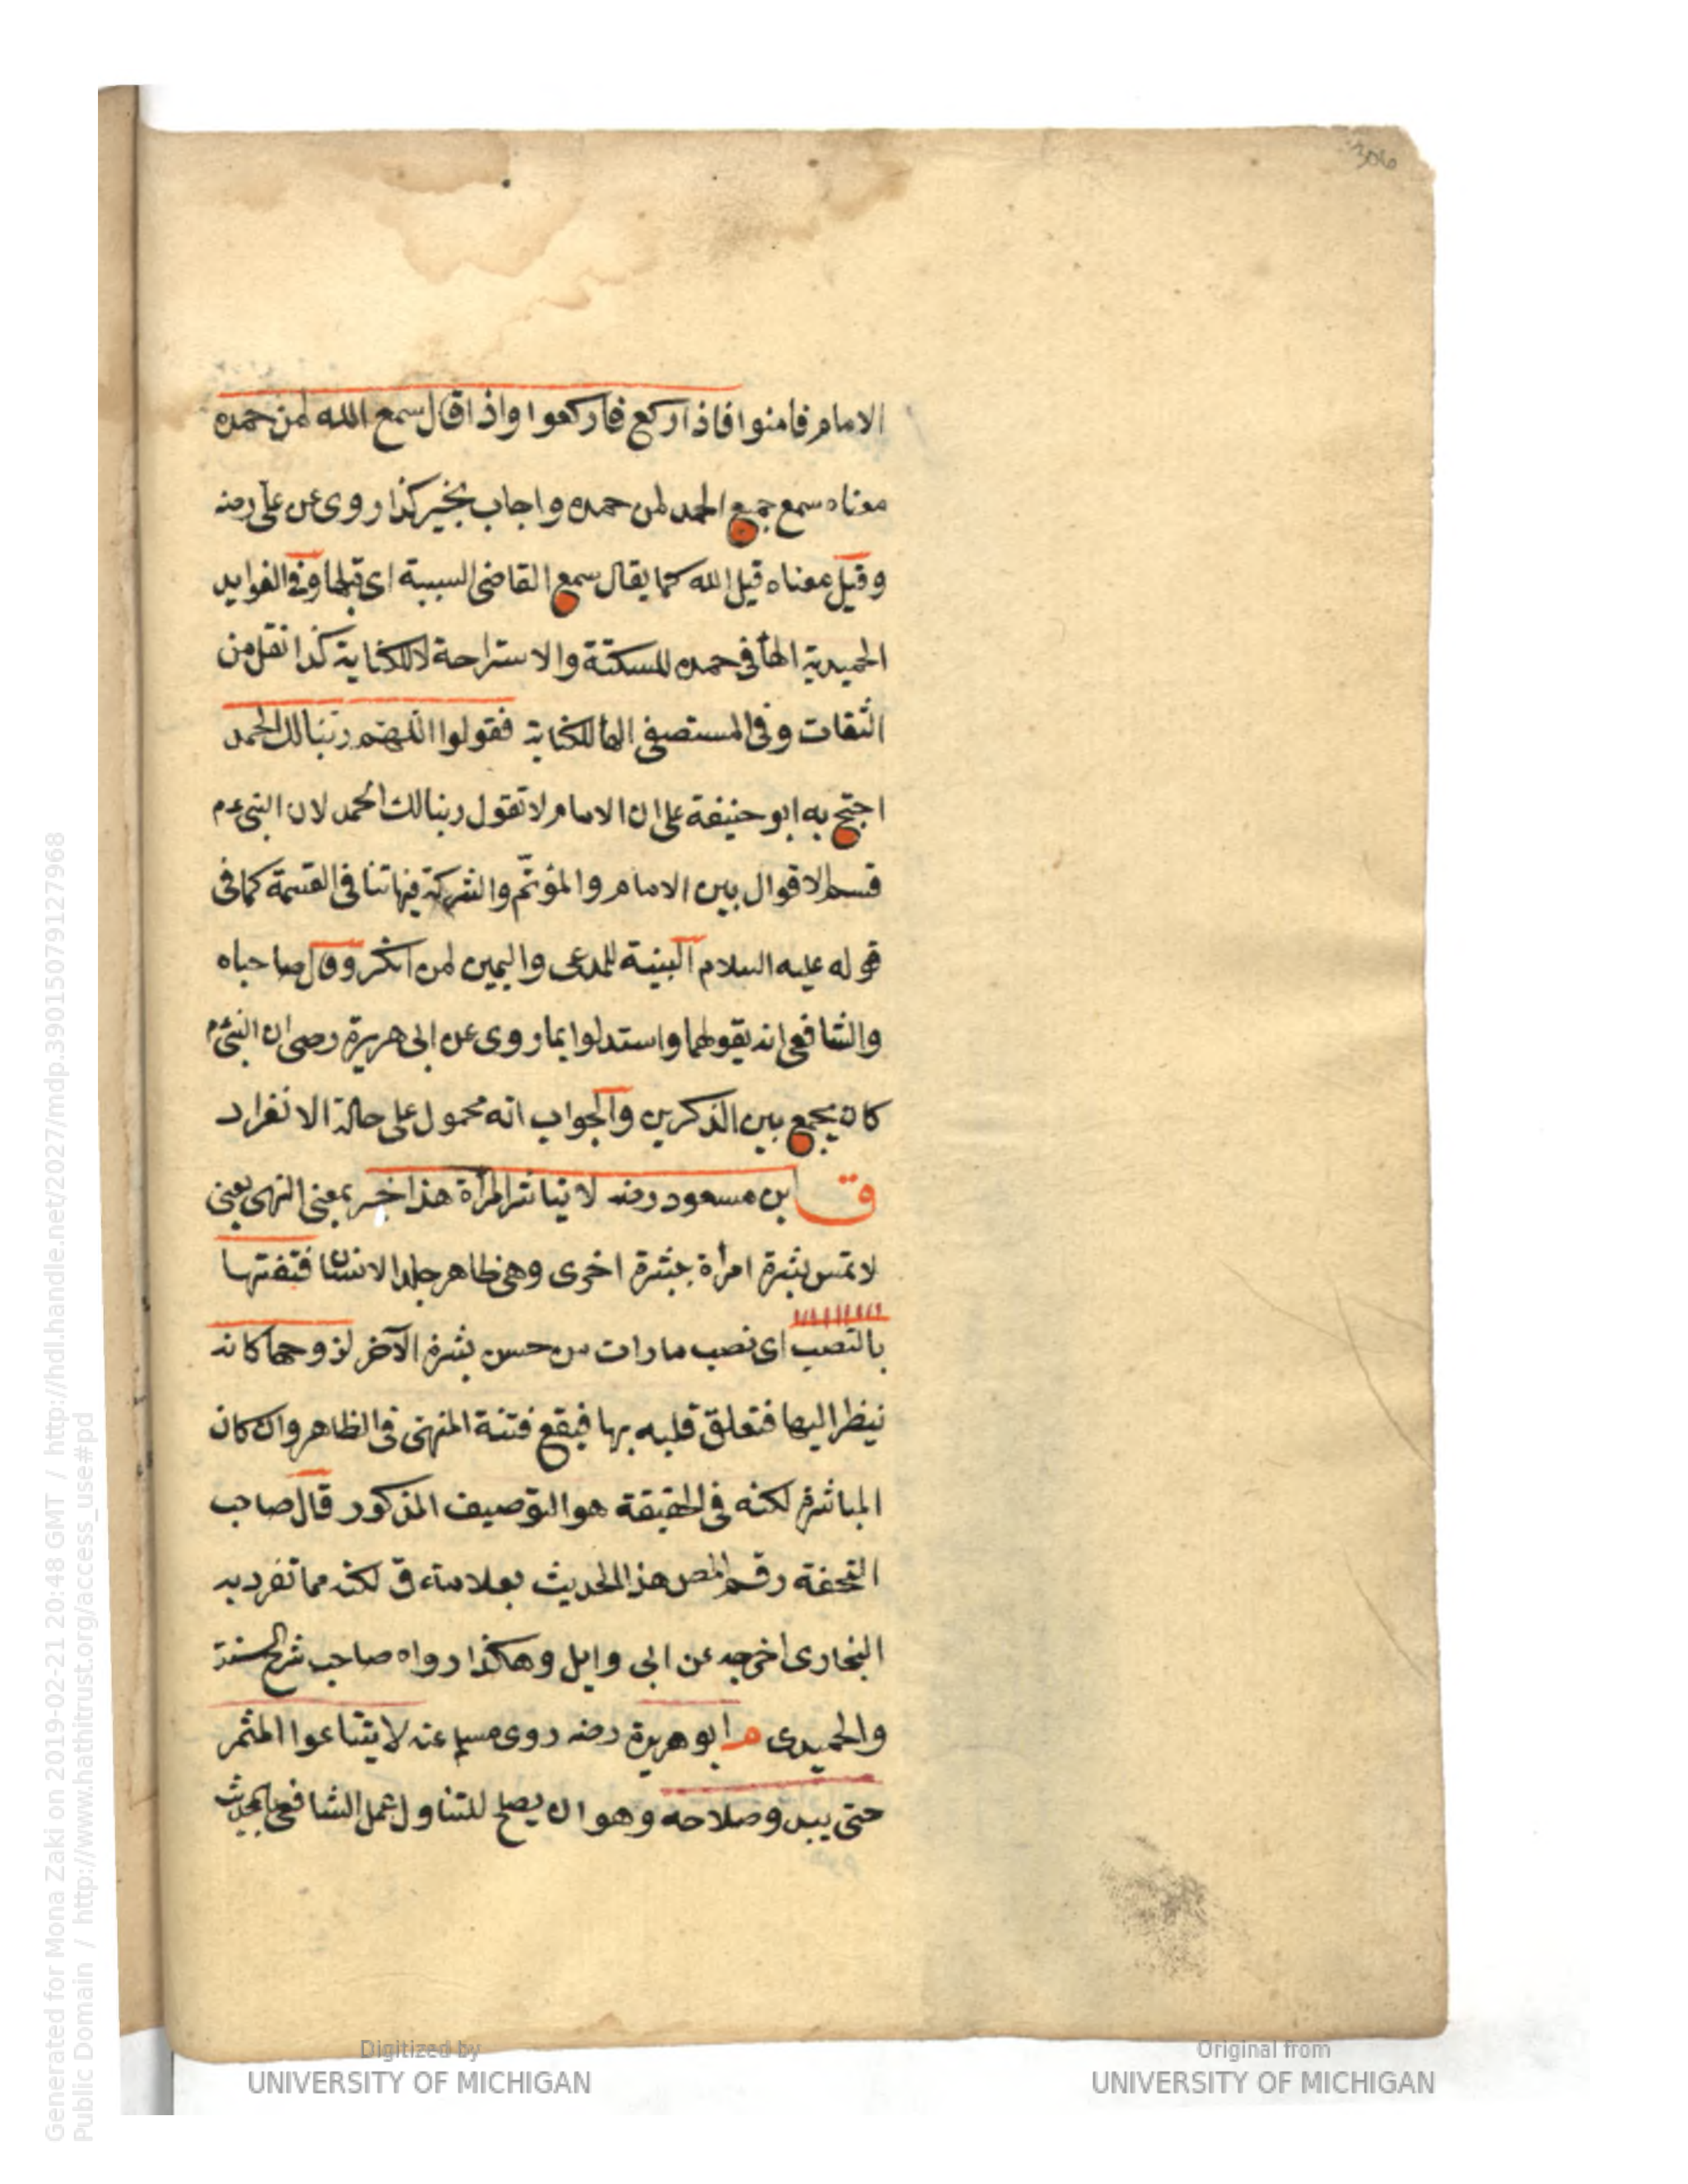 306
الامام فامنوا فاذا ركع فاركعوا واذا قال سمع الله لمن حمده
معناه سمع جميع الحمد لمن حمده واجاب بخير كذا روى عن على رضه
وقيل معناه قبل الله كما يقال سمع القاضى البينة اى قبلها وفى الفوايد
الحميدية الهاء فى حمده للسكتة والاستراحة لا للكناية كذا نقل من
الثقات وفى المستصفى الهاء للكناية فقولوا اللهم ربنا لك الحمد
احتج به ابو حنيفة على ان الامام لا تقول ربنا لك الحمد لان النبى عم
قسم الاقوال بين الامام والمؤتم والشركة فيها تنافى القسمة كما فى
قوله عليه السلام البينة للمدعى واليمين لمن انكر وقال صاحباه
والشافعى انه يقولها واستدلوا بما روى عن ابى هريرة رضى ان النبى عم
كان يجمع بين الذكرين والجواب انه محمول على حالة الانفراد
ق ابن مسعود رضه لا تباشر المرأة هذا خبر بمعنى النهى يعنى
لا تمس بشرة امرأة بشرة اخرى وهى ظاهر جلد الانسان فتنعتها
بالنصب اى نصب ما رات من حسن بشرة الآخر لزوجها كانه
ينظر اليها فتعلق قلبه بها فيقع فتنة المنهى فى الظاهر وان كان
المباشرة لكنه فى الحقيقة هو التوصيف المذكور قال صاحب
التحفة رقم المص هذا الحديث بعلامة ق لكنه مما تفرد به
البخارى اخرجه عن ابى وايل وهكذا رواه صاحب شرح السنة
والحميدى م ابو هريرة رضه روى مسلم عنه لا يتباعوا الثمر
حتى يبدو صلاحه وهو ان يصلح للتناول عمل الشافعى بالحديث
Generated for Mona Zaki on 2019-02-21 20:48 GMT / http://hdl.handle.net/2027/mdp.39015079127968
Public Domain / http://www.hathitrust.org/access_use#pd
Digitized by
UNIVERSITY OF MICHIGAN
Original from
UNIVERSITY OF MICHIGAN